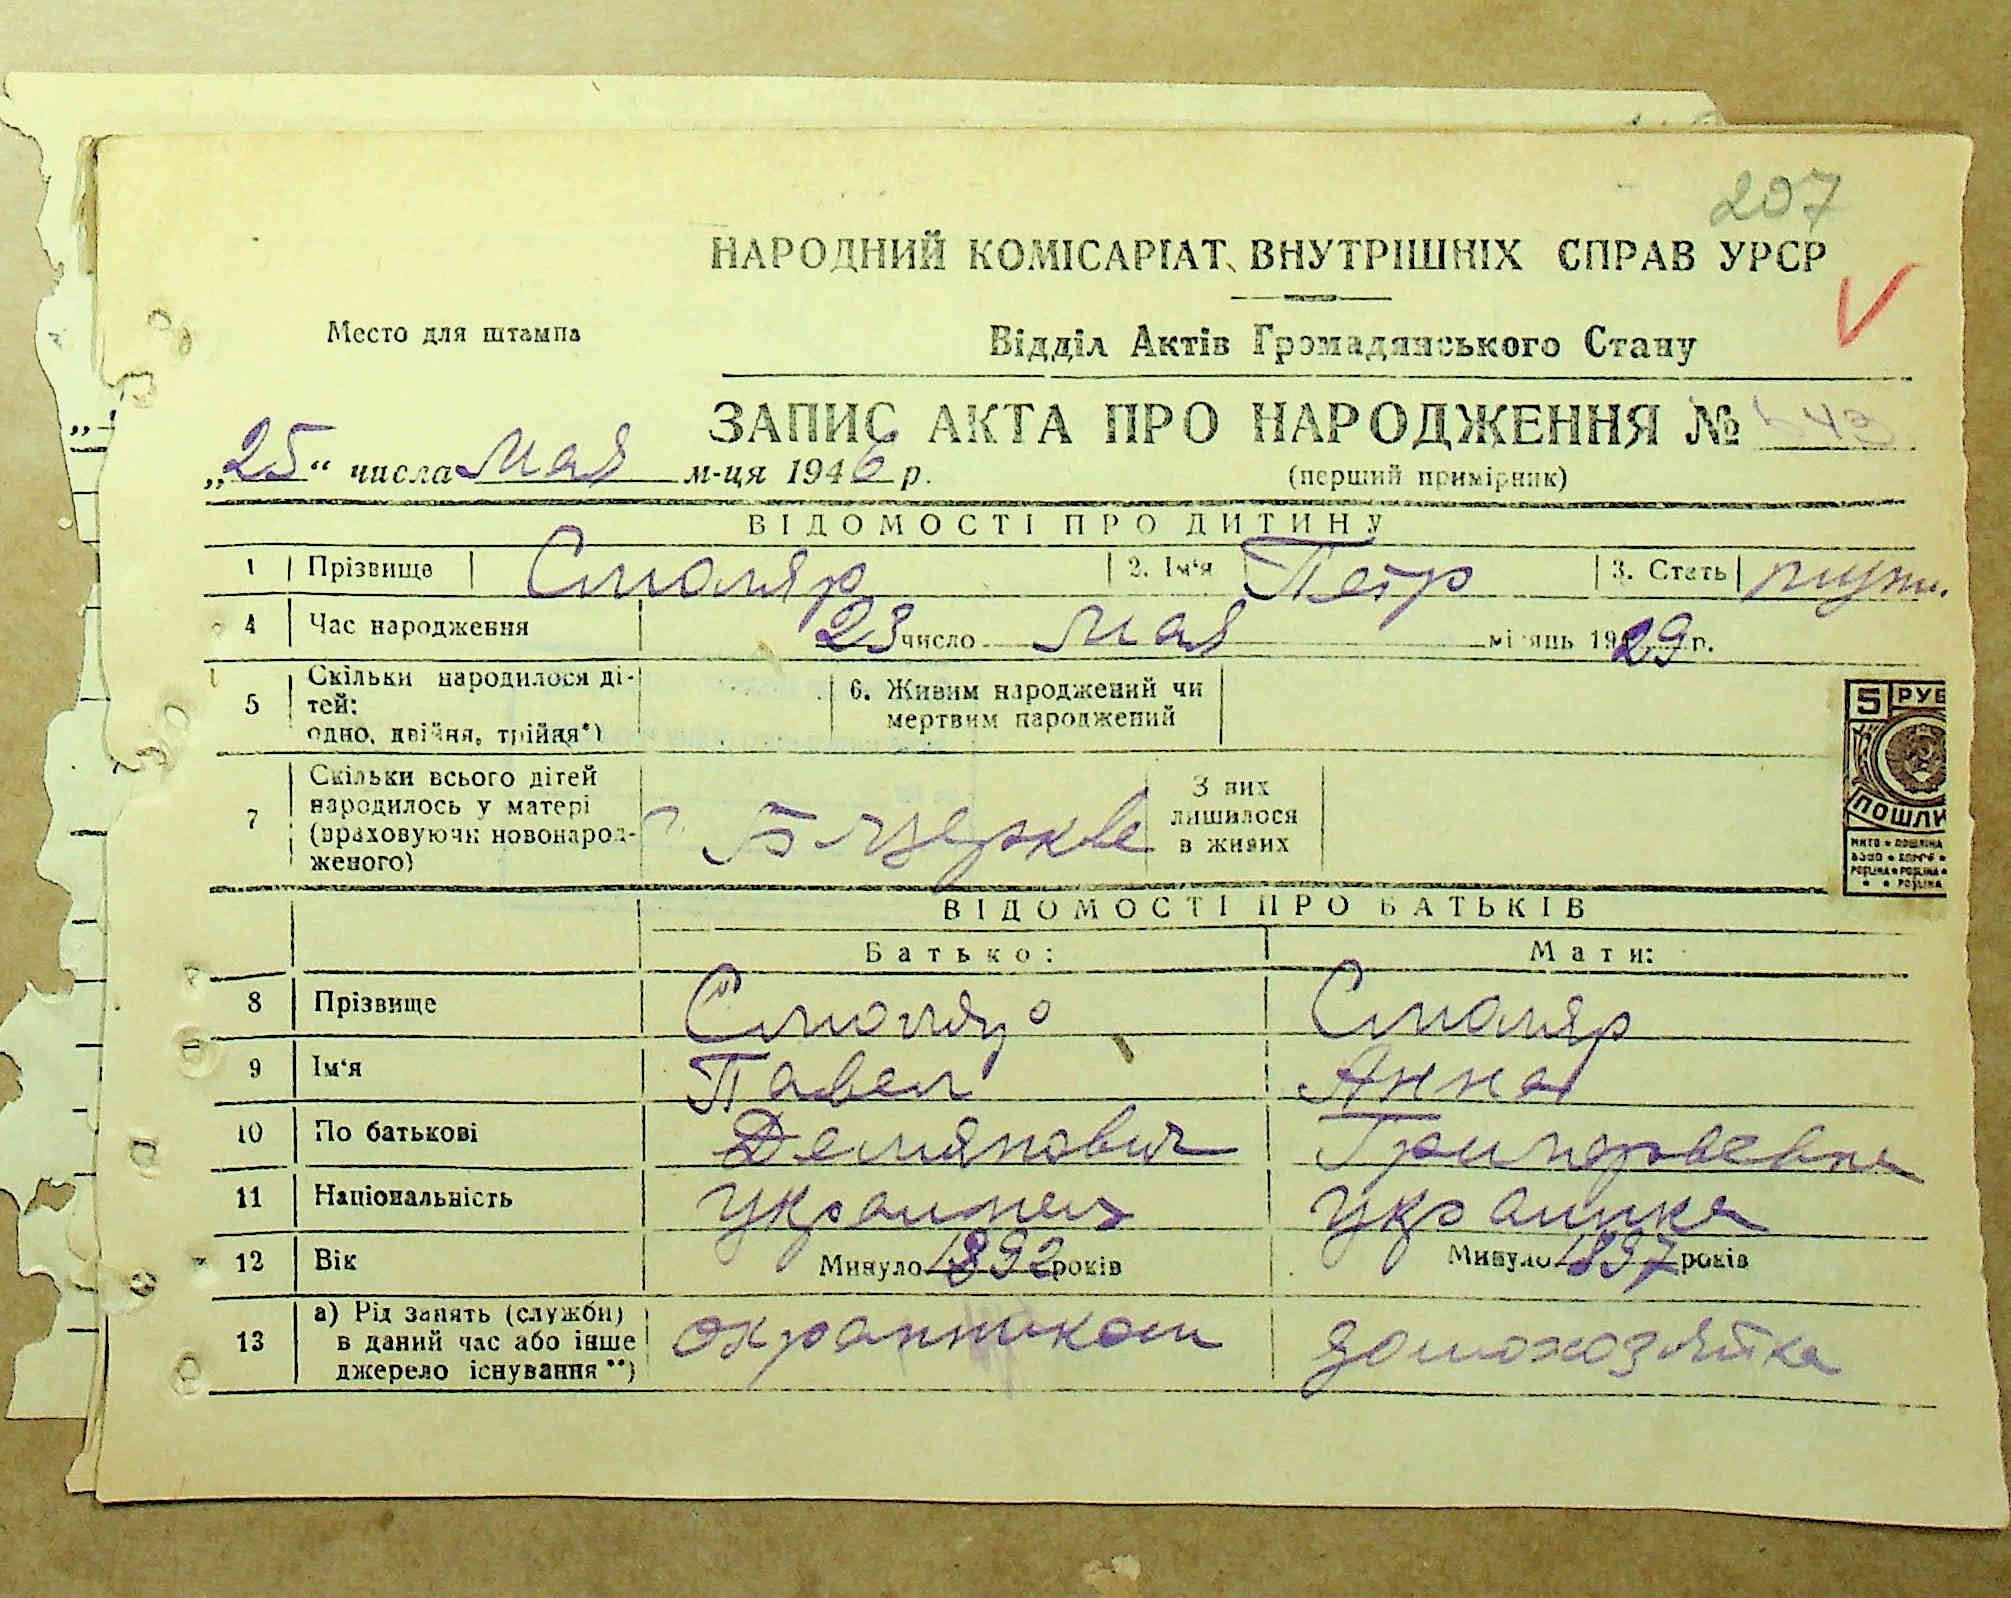 207
НАРОДНИЙ КОМІСАРІАТ ВНУТРІШНІХ СПРАВ УРСР
Место для штампа
Відділ Актів Громадянського Стану
ЗАПИС АКТА ПРО НАРОДЖЕННЯ №
„25“ числа мая м-ця 1946 р.
(перший примірник)
ВІДОМОСТІ ПРО ДИТИНУ
1 Прізвище Смоляр 2. Ім'я Петр 3. Стать муж.
4 Час народження 23 число мая місяць 1929 р.
5 Скільки народилося ді-
тей:
одно, двійня, трійня*)
6. Живим народжений чи
мертвим народжений
7 Скільки всього дітей
народилось у матері
(враховуючи новонарод-
женого)
Б Церкве
З них
лишилося
в живих
5 РУБ
ПОШЛИ
МИТО • ПОШЛІНА
ВІДОМОСТІ ПРО БАТЬКІВ
Батько: Мати:
8 Прізвище Смоляр Смоляр
9 Ім'я Павел Анна
10 По батькові Демянович Григорьевна
11 Національність украинец украинка
12 Вік Минуло 1892 років Минуло 1897 років
13 а) Рід занять (служби)
в даний час або інше
джерело існування **)
охранником домохозяйка